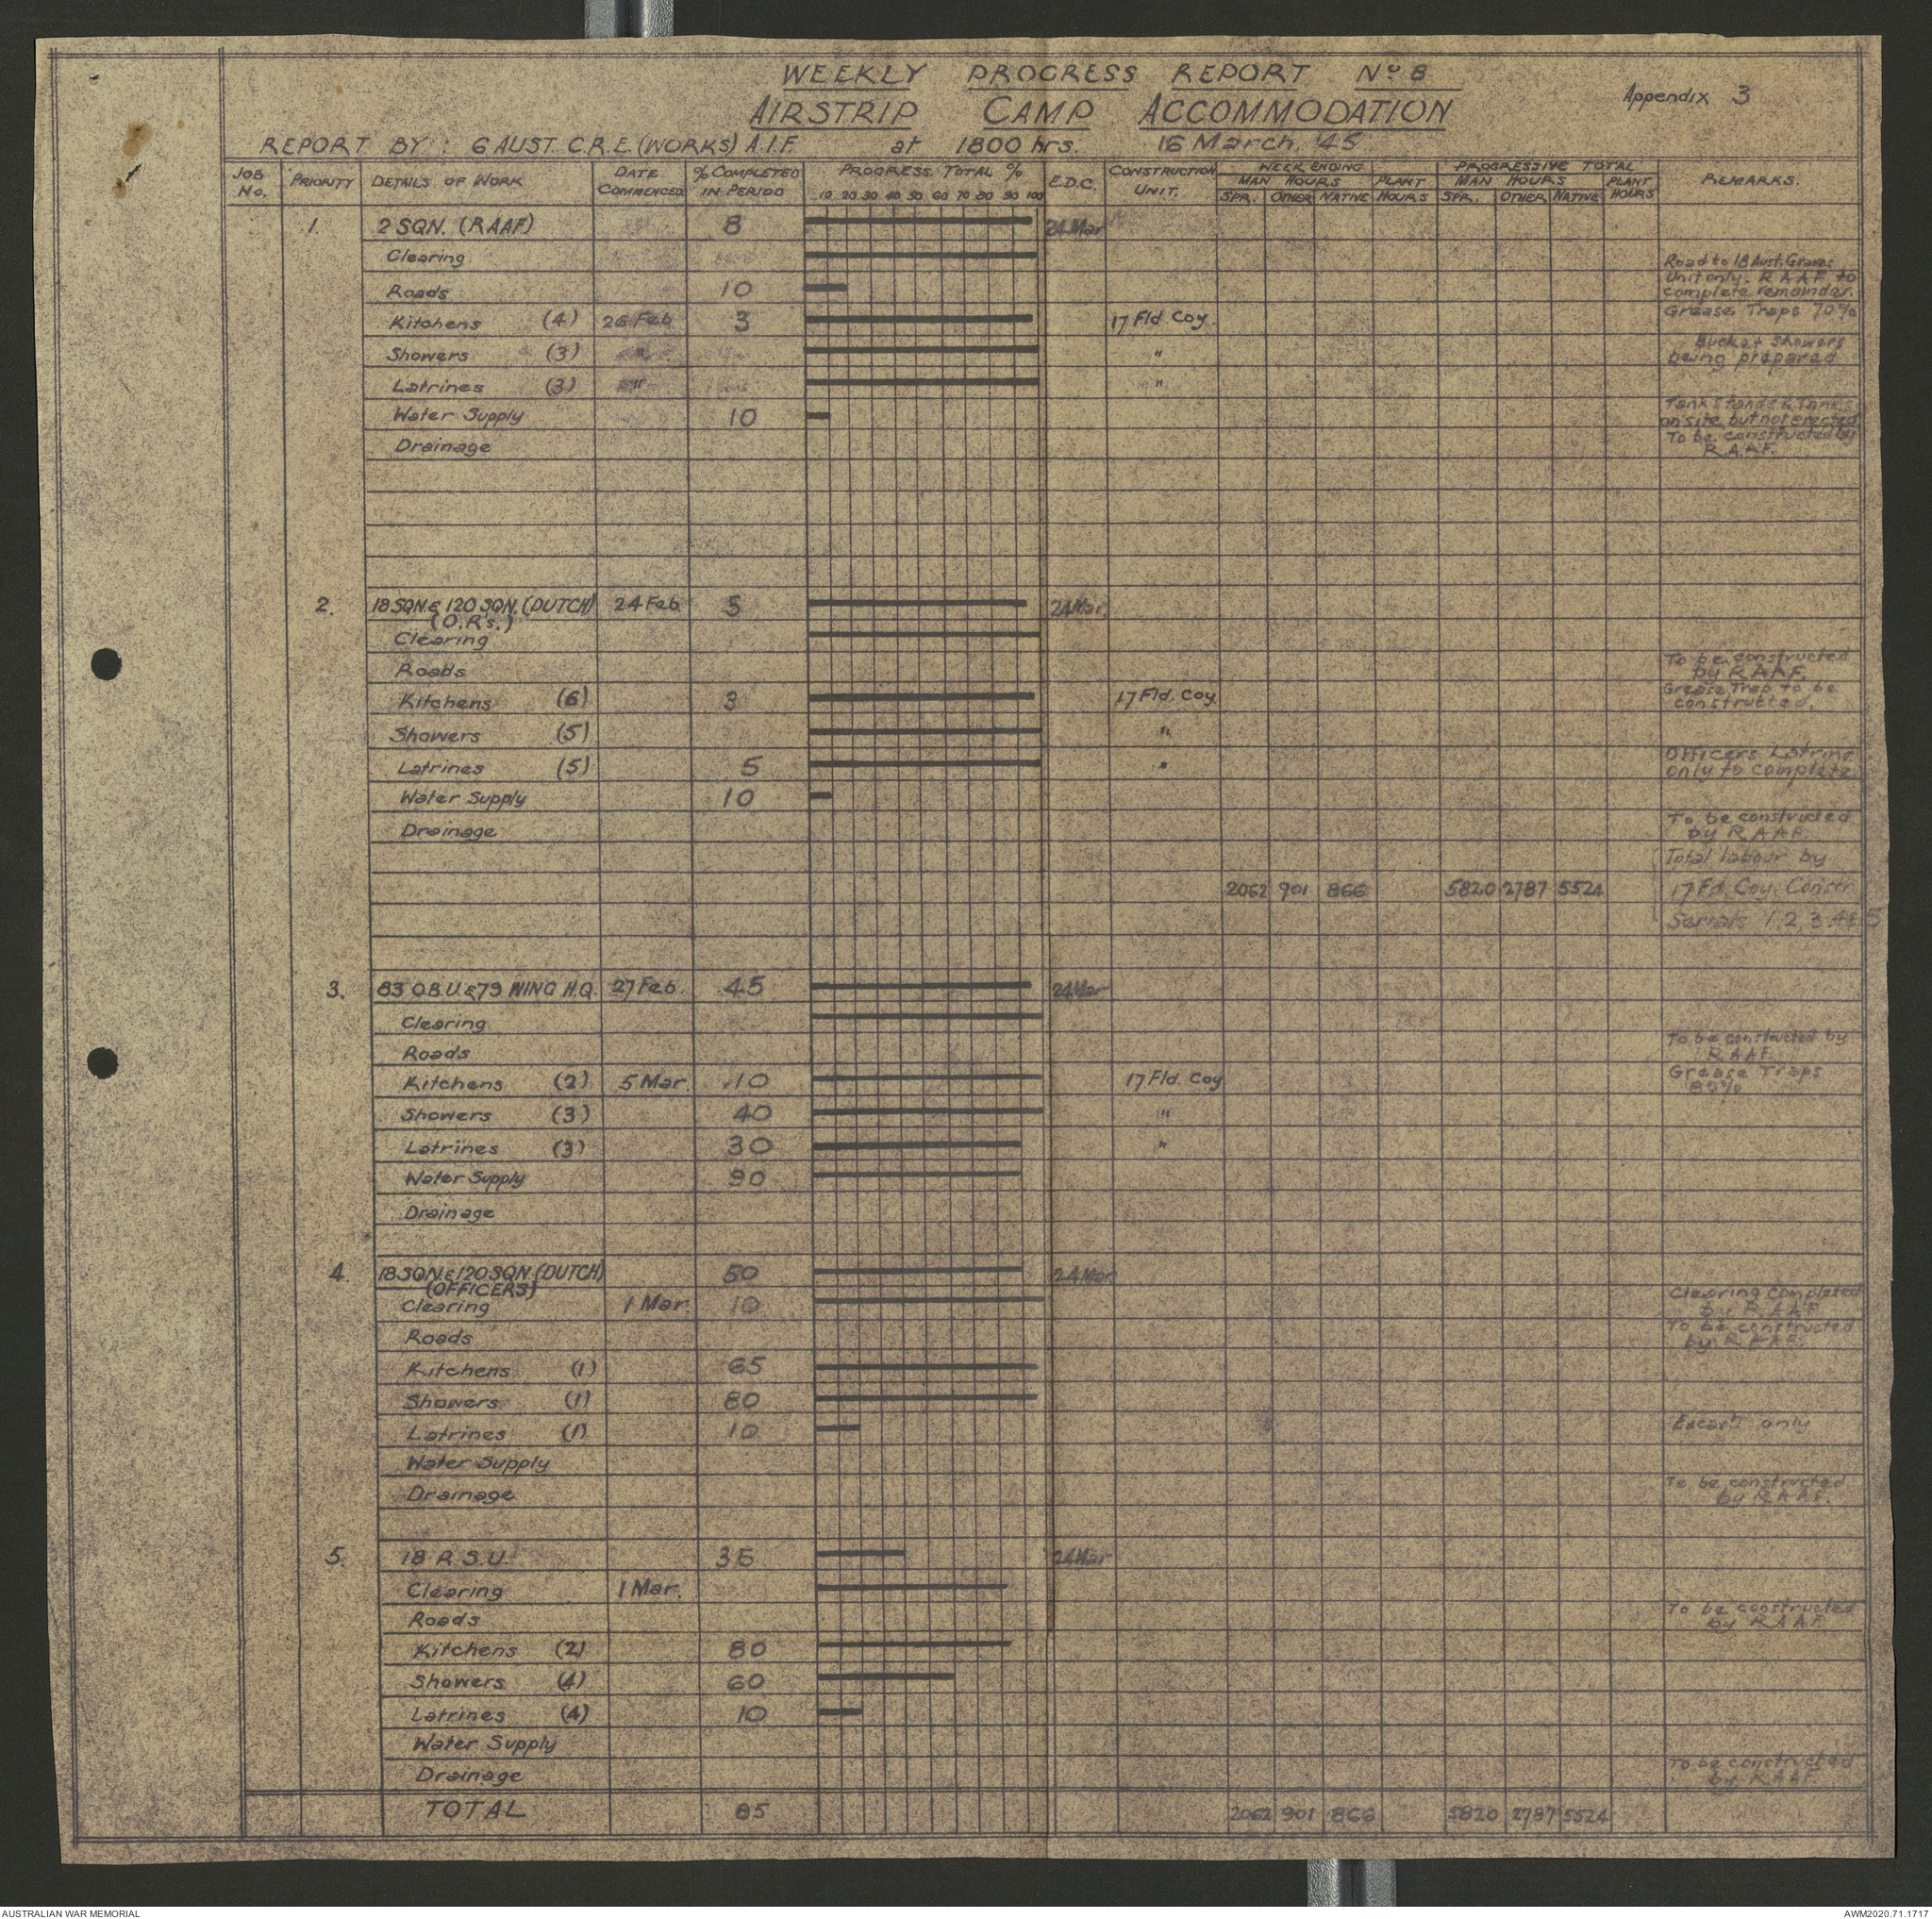 WEEKLY PROGRESS REPORT No 8
AIRSTRIP CAMP ACCOMMODATION
Appendix 3
REPORT BY: 6 AUST. C.R.E. (WORKS) A.I.F. at 1800 hrs. 16 March. '45
JOB No. PRIORITY DETAILS OF WORK DATE COMMENCED % COMPLETED IN PERIOD PROGRESS TOTAL % E.D.C. CONSTRUCTION UNIT. WEEK ENDING PROGRESSIVE TOTAL REMARKS.
MAN HOURS PLANT HOURS MAN HOURS PLANT HOURS
10 20 30 40 50 60 70 80 90 100 SPR. OTHER NATIVE SPR. OTHER NATIVE
1. 2 SQN. (RAAF) 8 24 Mar
Clearing
Road to 18 Aust. Graves
Unit only. RAAF to
complete remainder.
Roads 10
Kitchens (4) 26 Feb 3 17 Fld. Coy. Grease Traps 70%
Showers (3) " Bucket Showers
being prepared
Latrines (3) " "
Water Supply 10 Tank stands & Tanks
on site but not erected
Drainage To be constructed by
R.A.A.F.
2. 18 SQN. & 120 SQN. (DUTCH) 24 Feb 5 24 Mar.
(O.R's.)
Clearing
Roads To be constructed
by R.A.A.F.
Kitchens (6) 3 17 Fld. Coy Grease Trap to be
constructed.
Showers (5) "
Latrines (5) 5 " Officers Latrine
only to complete
Water Supply 10
Drainage To be constructed
by R.A.A.F.
Total labour by
2062 901 866 5820 2787 5524 17 Fd. Coy. Constr
Serials 1, 2, 3 4 & 5
3. 83 O.B.U. & 79 WING H.Q. 27 Feb. 45 24 Mar
Clearing
Roads To be constructed by
R.A.A.F.
Kitchens (2) 5 Mar. 10 17 Fld. Coy Grease Traps
80%
Showers (3) 40 "
Latrines (3) 30 "
Water Supply 90
Drainage
4. 18 SQN. & 120 SQN. (DUTCH) 50 24 Mar
(OFFICERS)
Clearing 1 Mar. 10 Clearing completed
by R.A.A.F.
Roads To be constructed
by R.A.A.F.
Kitchens (1) 65
Showers (1) 80
Latrines (1) 10 only
Water Supply
Drainage To be constructed
by R.A.A.F.
5. 18 R.S.U. 35 24 Mar
Clearing 1 Mar.
Roads To be constructed
by R.A.A.F.
Kitchens (2) 80
Showers (4) 60
Latrines (4) 10
Water Supply
Drainage To be constructed
by R.A.A.F.
TOTAL 85 2062 901 866 5820 2787 5524
AUSTRALIAN WAR MEMORIAL AWM2020.71.1717